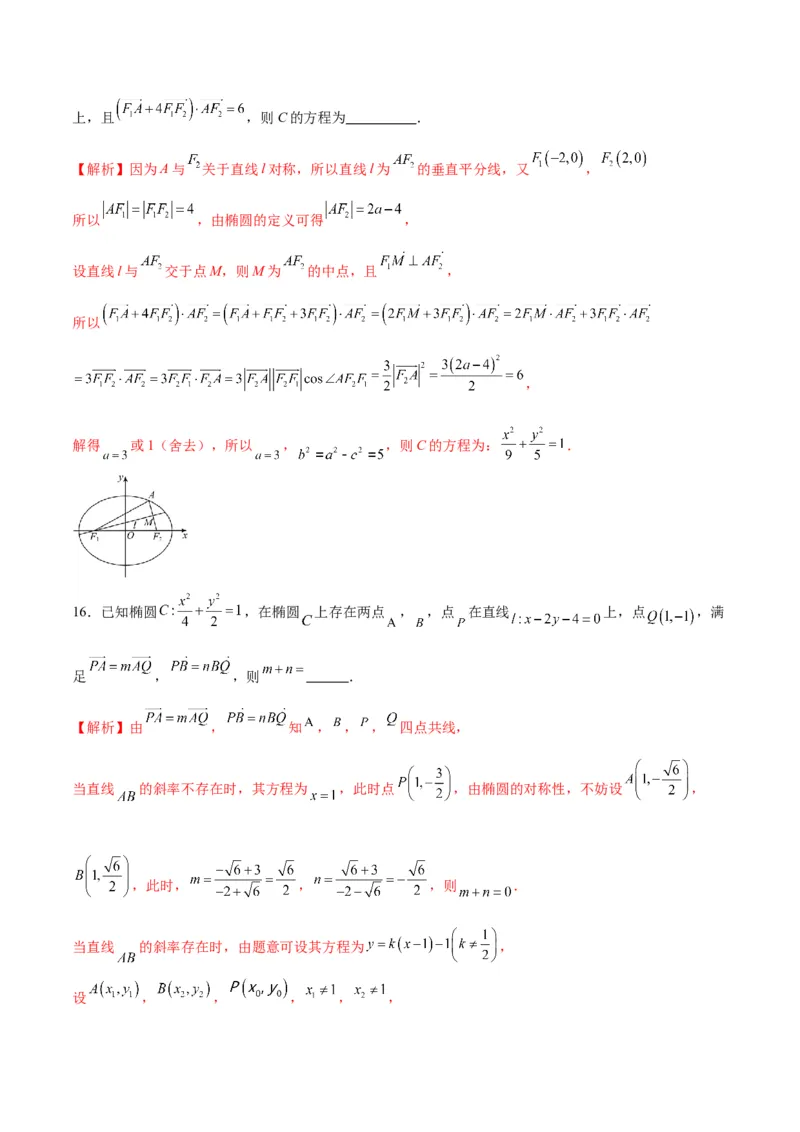 上，且(F₁A+4F₁F₂)·AF₂=6，则C的方程为__________．
【解析】因为A与F₂关于直线l对称，所以直线l为AF₂的垂直平分线，又F₁(−2,0)，F₂(2,0)
所以|AF₁|=|F₁F₂|=4，由椭圆的定义可得|AF₂|=2a−4，
设直线l与AF₂交于点M，则M为AF₂的中点，且F₁M⊥AF₂，
所以(F₁A+4F₁F₂)·AF₂=(F₁A+F₁F₂+3F₁F₂)·AF₂=(2F₁M+3F₁F₂)·AF₂=2F₁M·AF₂+3F₁F₂·AF₂
=3F₁F₂·AF₂=3F₂F₁·F₂A=3|F₂A||F₂F₁|cos∠AF₂F₁=3/2|F₂A|²=3(2a−4)²/2=6，
解得a=3或1（舍去），所以a=3，b²=a²-c²=5，则C的方程为：x²/9+y²/5=1．
y
A
M
l
F₁ O F₂ x
16．已知椭圆C:x²/4+y²/2=1，在椭圆C上存在两点A，B，点P在直线l:x−2y−4=0上，点Q(1,−1)，满
足PA=mAQ，PB=nBQ，则m+n=______．
【解析】由PA=mAQ，PB=nBQ知A，B，P，Q四点共线，
当直线AB的斜率不存在时，其方程为x=1，此时点P(1,−3/2)，由椭圆的对称性，不妨设A(1,−√6/2)，
B(1,√6/2)，此时，m=(−√6+3)/(−2+√6)=√6/2，n=(√6+3)/(−2−√6)=−√6/2，则m+n=0．
当直线AB的斜率存在时，由题意可设其方程为y=k(x−1)−1(k≠1/2)，
设A(x₁,y₁)，B(x₂,y₂)，P(x₀,y₀)，x₁≠1，x₂≠1，